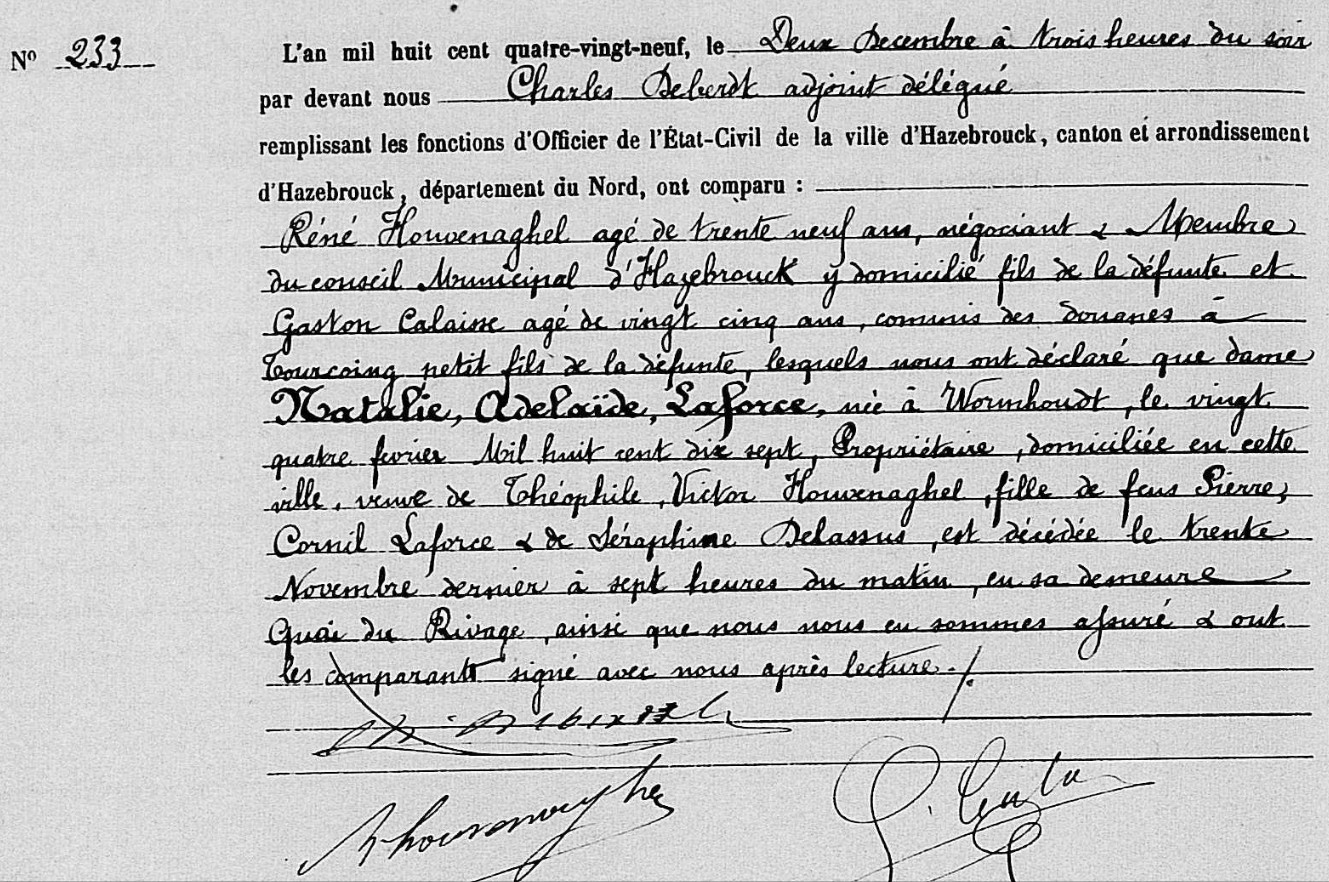 N° 233
L'an mil huit cent quatre-vingt-neuf, le Deux Decembre à trois heures du soir
par devant nous Charles Deberdt adjoint délégué
remplissant les fonctions d'Officier de l'État-Civil de la ville d'Hazebrouck, canton et arrondissement
d'Hazebrouck, département du Nord, ont comparu :
Réné Houvenaghel agé de trente neuf ans, négociant & Membre
du conseil Municipal d'Hazebrouck y domicilié fils de la défunte et
Gaston Calaisse agé de vingt cinq ans, commis des douanes à
Tourcoing petit fils de la défunte, lesquels nous ont déclaré que dame
Natalie, Adelaïde, Laforce, née à Wormhoudt, le vingt
quatre fevrier Mil huit cent dix sept, Propriétaire, domiciliée en cette
ville, veuve de Théophile, Victor Houvenaghel, fille de feus Pierre,
Cornil Laforce & de Séraphine Delassus, est décédée le trente
Novembre dernier à sept heures du matin, en sa demeure
Quai du Rivage, ainsi que nous nous en sommes assuré & ont
les comparants signé avec nous après lecture./.